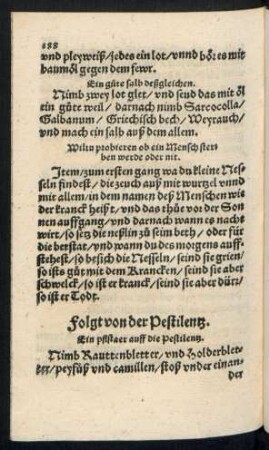 188
vnd pleyweiß/jedes ein lot/vnnd bötz es mit
baumöl gegen dem fewr.
Ein gůte salb deßgleichen.
Nimb zwey lot glet/vnd seud das mit öl
ein gůte weil/ darnach nimb Sarcocolla/
Galbanum/ Griechisch bech/ Weyrauch/
vnd mach ein salb auß dem allem.
Wiltu probieren ob ein Mensch ster=
ben werde oder nit.
Item/zum ersten gang wa du kleine Nes=
seln findest/ die zeuch auß mit wurtzel vnnd
mit allem/in dem namen deß Menschen wie
der kranck heißt/vnd das thůe vor der Son
nen auffgang/vnd darnach wann es nacht
wirt/so setz die neßlin zů seim beth/ oder für
die betstat/vnd wann du des morgens auff=
stehest/so besich die Nesseln/ seind sie grien/
so ists gůt mit dem Krancken/ seind sie aber
schwelck/ so ist er kranck/ seind sie aber dürr/
so ist er Todt.
Folgt von der Pestilentz.
Ein pflaster auff die Pestilentz.
Nimb Rauttenbletter/ vnd Holderblet=
ter/peyfůß vnd camillen/stoß vnder einan=
der